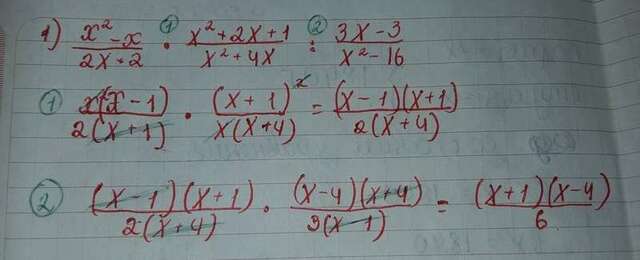 1) (x² - x)/(2x + 2) ·① (x² + 2x + 1)/(x² + 4x) :② (3x - 3)/(x² - 16)
① x(x - 1)/2(x + 1) · (x + 1)²/x(x + 4) = (x - 1)(x + 1)/2(x + 4)
② (x - 1)(x + 1)/2(x + 4) · (x - 4)(x + 4)/3(x - 1) = (x + 1)(x - 4)/6